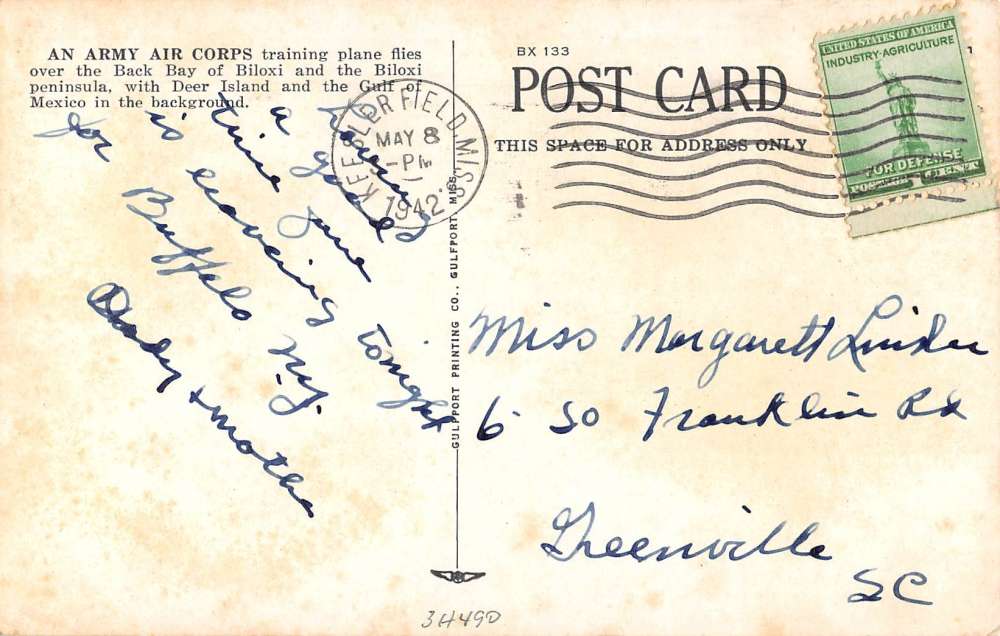 AN ARMY AIR CORPS training plane flies
over the Back Bay of Biloxi and the Biloxi
peninsula, with Deer Island and the Gulf of
Mexico in the background.
having
a good
time June
is leaving tonight
for Buffalo N.Y.
Dady & Mother
GULFPORT PRINTING CO., GULFPORT, MISS.
BX 133
POST CARD
THIS SPACE FOR ADDRESS ONLY
KEESLER FIELD, MISS.
MAY 8
-PM
1942
UNITED STATES OF AMERICA
INDUSTRY-AGRICULTURE
FOR DEFENSE
POSTAGE 1 CENT
Miss Margarett Linder
6 So Franklin Rd
Greenville
SC
3H490